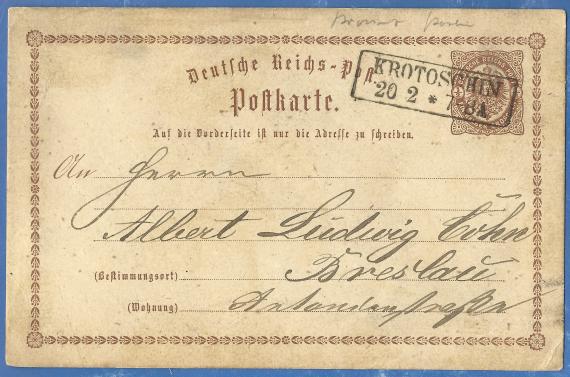 Deutsche Reichs-Post
Postkarte.
KROTOSCHIN
20 2 * 7-8A
Auf die Vorderseite ist nur die Adresse zu schreiben.
An Herrn
Albert Ludwig Cohn
(Bestimmungsort) Breslau
(Wohnung) Antonienstraße